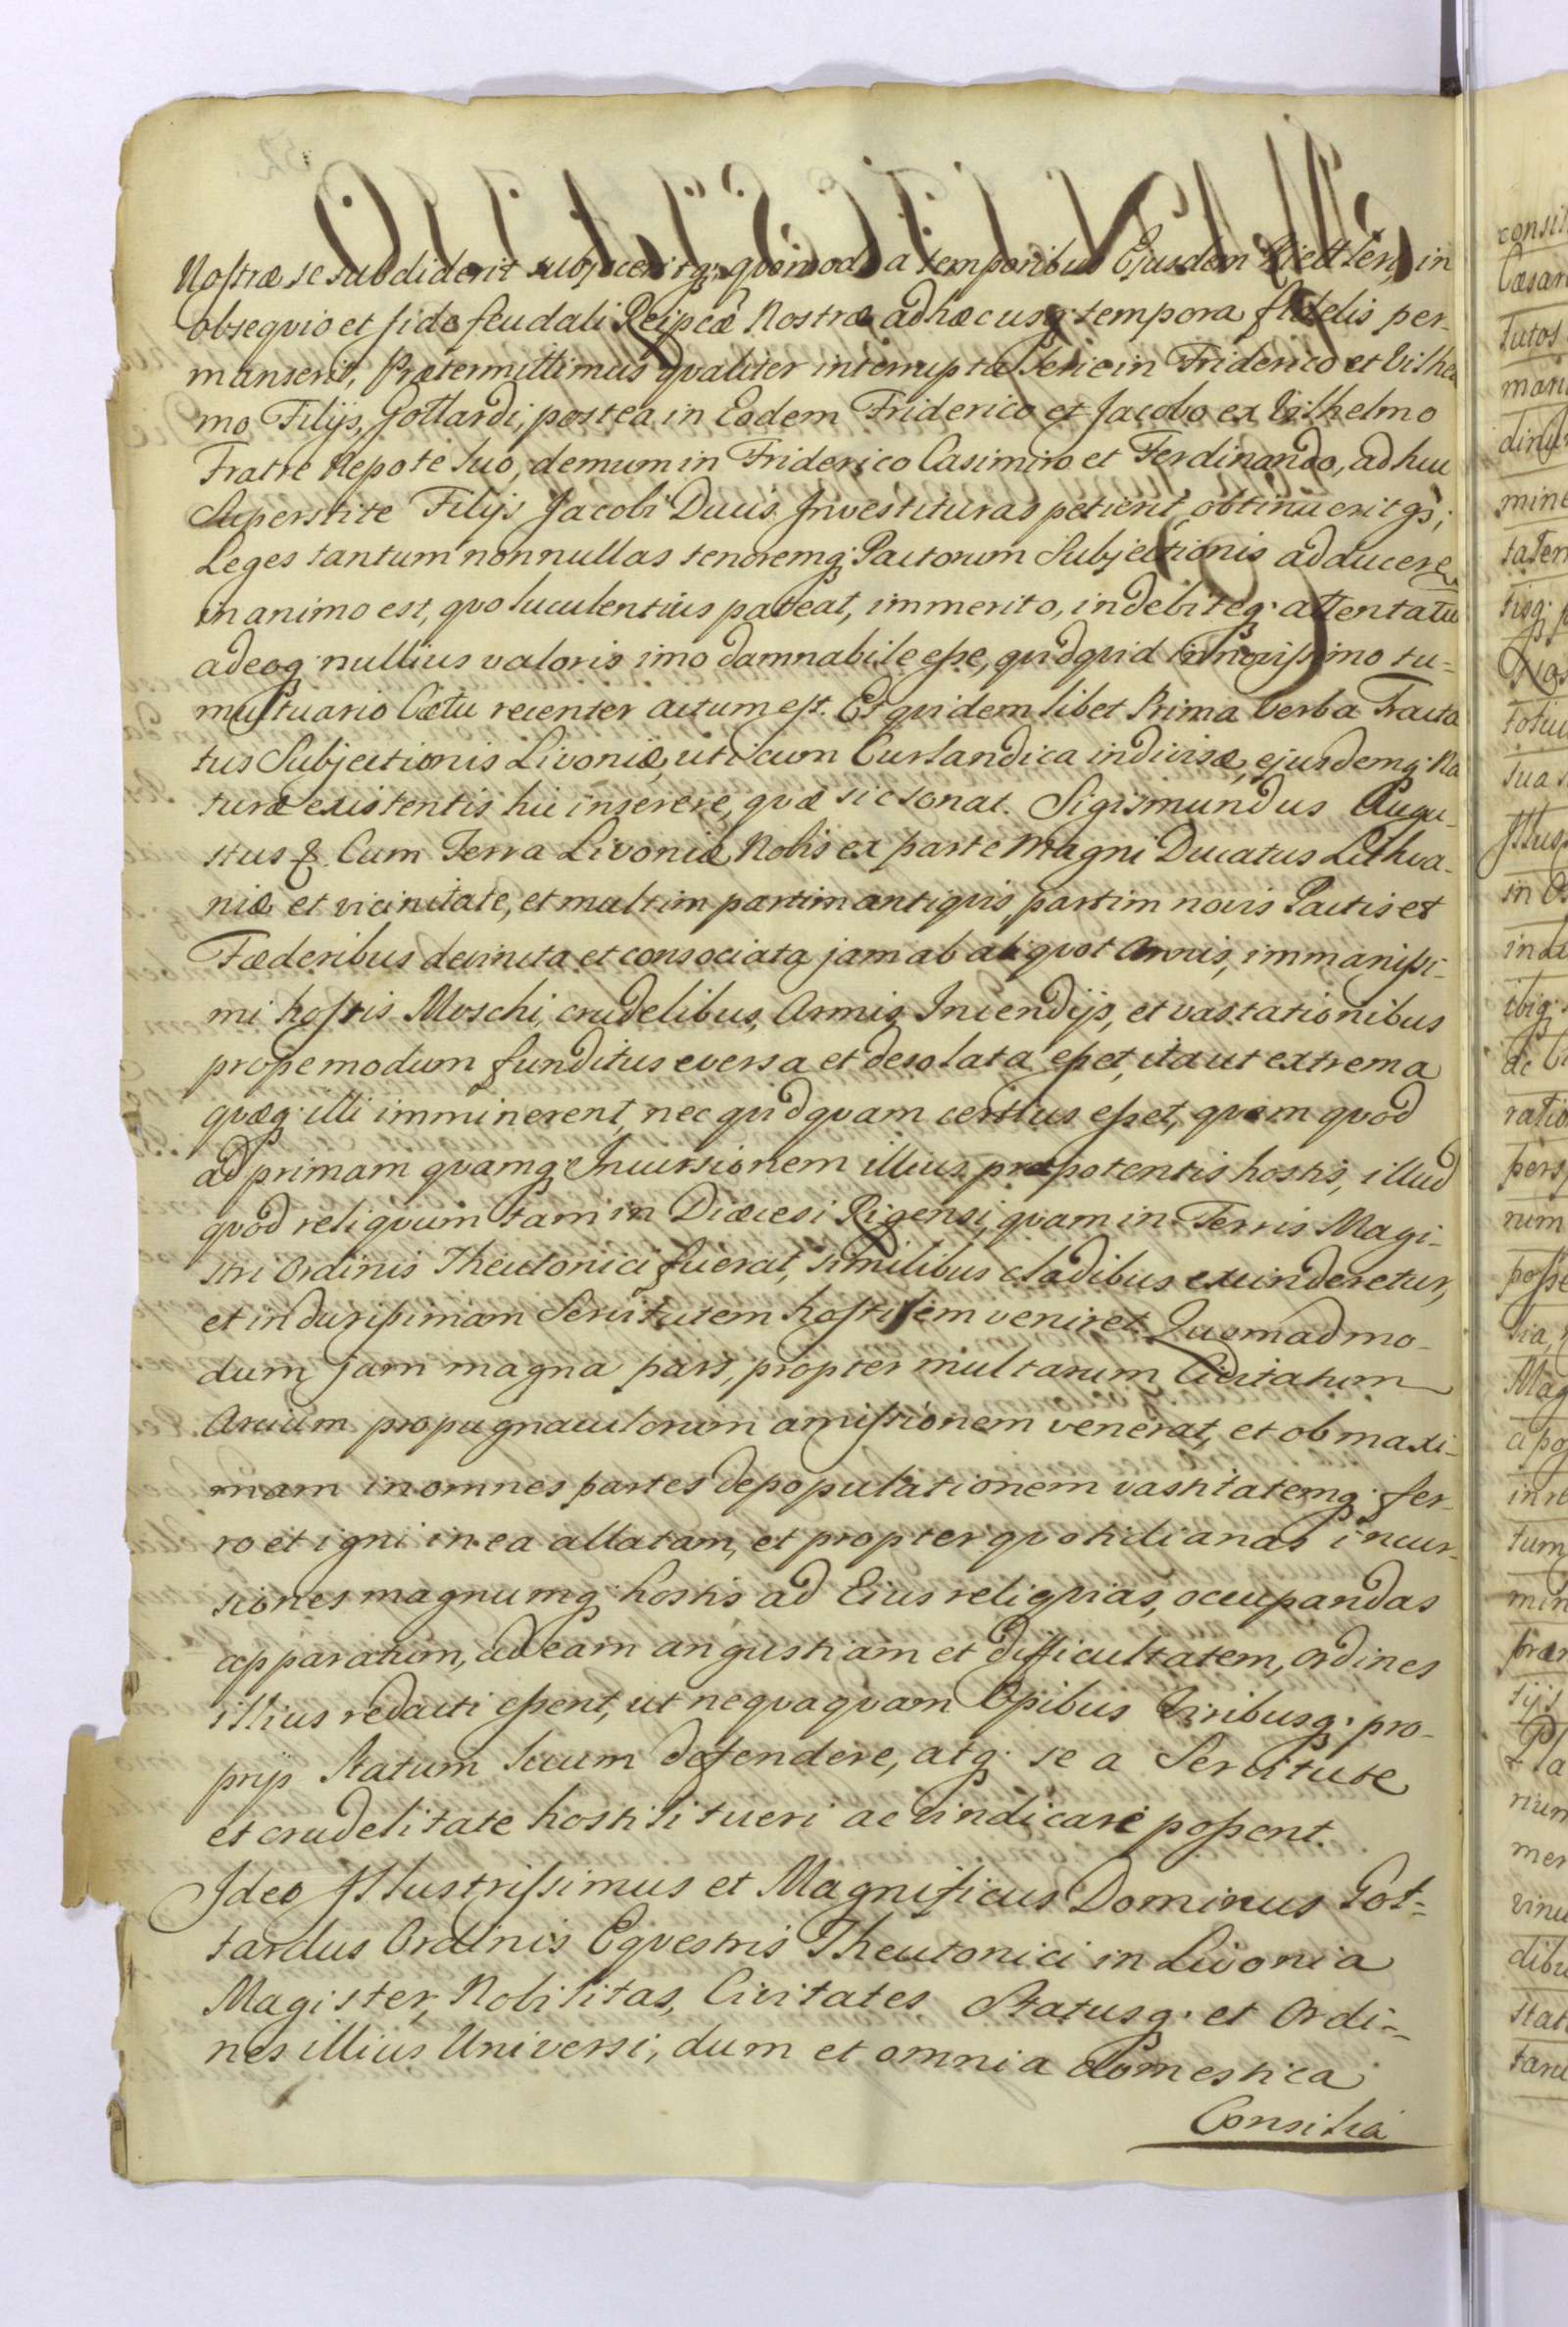 Nostræ se subdiderit subjeceritq; quomodo a temporibus Ejusdem Kiettleri, in
obseqvio et fide feudali Reipcæ Nostræ ad hæcusq; tempora fidelis per-
manserit, Prætermittimus qvaliter interrupta Serie in Friderico et Vilhel
mo Filijs, Gottardi, postea in Eodem Friderico et Jacobo ex Vilhelmo
Fratre Nepote suo, demum in Friderico Casimiro et Ferdinando, ad huc
Superstite Filijs Jacobi Ducis Investituras petierit, obtinuerit qs;
Leges tantum nonnullas tenoremq; Pactorum Subjectionis adducere
in animo est, qvo luculentius pateat, immerito, indebiteq; attentatu
adeoq; nullius valoris imo damnabile esse, qvidqvid in novissimo tu-
multuario Cætu recenter actum est. Et qvidem libet Prima Verba Tracta
tus Subjectionis Livoniæ, uti cum Curlandica indivisæ, ejusdemq; Na
turæ existentis hic inserere, qvæ sic sonat. Sigismundus Augu-
stus &. Cum Terra Livoniæ Nobis ex parte Magni Ducatus Lithva-
niæ et vicinitate, et multim partim antiqvis, partim novis Pactis et
Fæderibus devincta et consociata jam ab aliqvot Annis, immanissi-
mi hostis Moschi, crudelibus, Armis, Incendijs, et vastationibus
prope modum funditus eversa et desolata esset, ita ut extrema
qvæq; illi imminerent, nec qvidqvam certius esset, qvam qvod
ad primam qvamq; Incursionem illius præpotentis hostis, illud
qvod reliqvum tam in Diæcesi Rigensi, qvam in Terris Magi-
stri Ordinis Theutonici fuerat, similibus cladibus exinderetur,
et in durissimam Servitutem hostilem veniret Quemadmo-
dum jam magna pars, propter multarum Civitatum
Arcium propugnaculorum amissionem venerat, et ob maxi-
mam in omnes partes depopulationem vastitatemq; fer-
ro et igni in ea allatam, et propter qvotidianas incur-
siones magnumq; hostis ad Eius reliqvias, occupandas
apparatum, ad eam angustiam et difficultatem, ordines
illius redacti essent, ut neqvaqvam Opibus Viribusq; pro-
prijs Statum Suum defendere, atq; se a Servitute
et crudelitate hostili tueri ac vindicare possent.
Ideo Illustrissimus et Magnificus Dominus Got-
tardus Ordinis Eqvestris Theutonici in Livonia
Magister, Nobilitas, Civitates Statusq; et Ordi-
nes illius Universi, dum et omnia domestica
Consilia